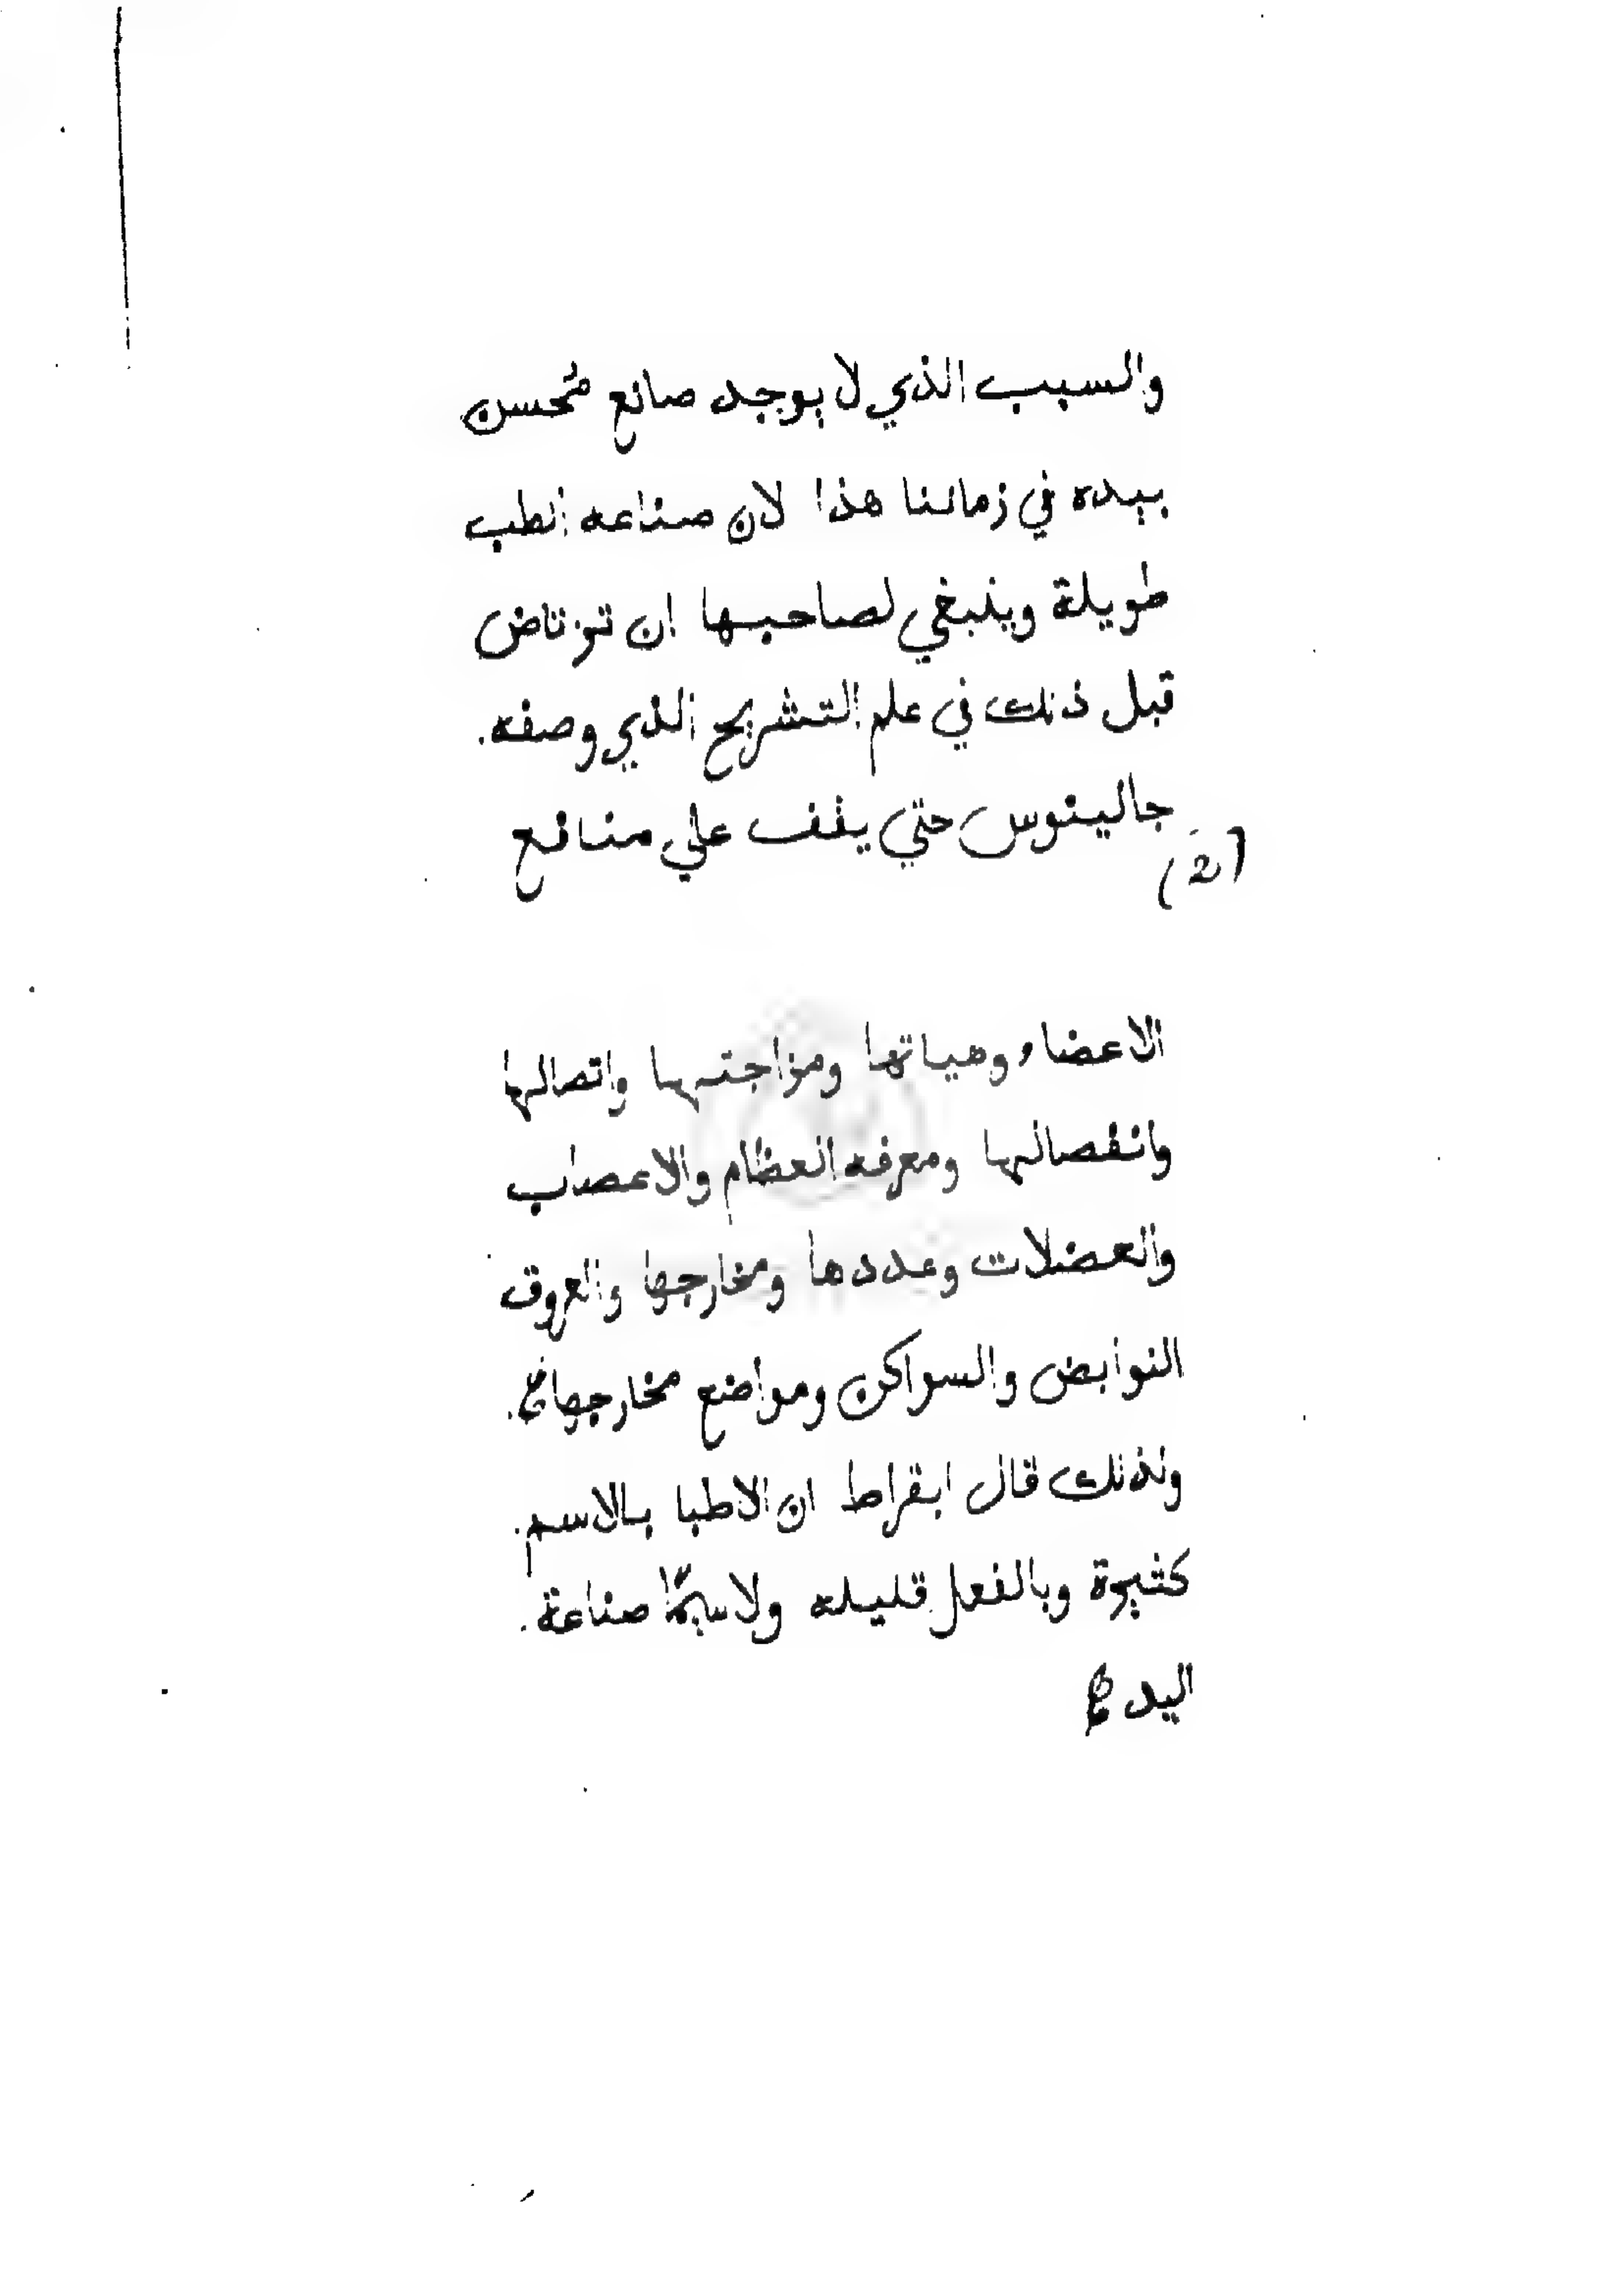 والسبب الذي لا يوجد صانع مُحسن
بيده في زماننا هذا لان صناعه الطب
طويلة وينبغي لصاحبها ان ترتاض
قبل ذلك في علم التشريح الذي وصفه.
جالينوس حتي يقف علي منافع
(2)
الاعضاء وهياتها ومزاجتها واتصالها
وانفصالها ومعرفه العظام والاعصاب
والعضلات وعددها ومخارجها والعروق
النوابض والسواكن ومواضع مخارجها
ولذلك قال ابقراط ان الاطبا بالاسم.
كثيرة وبالفعل قليله ولا سيمّا صناعة.
اليد